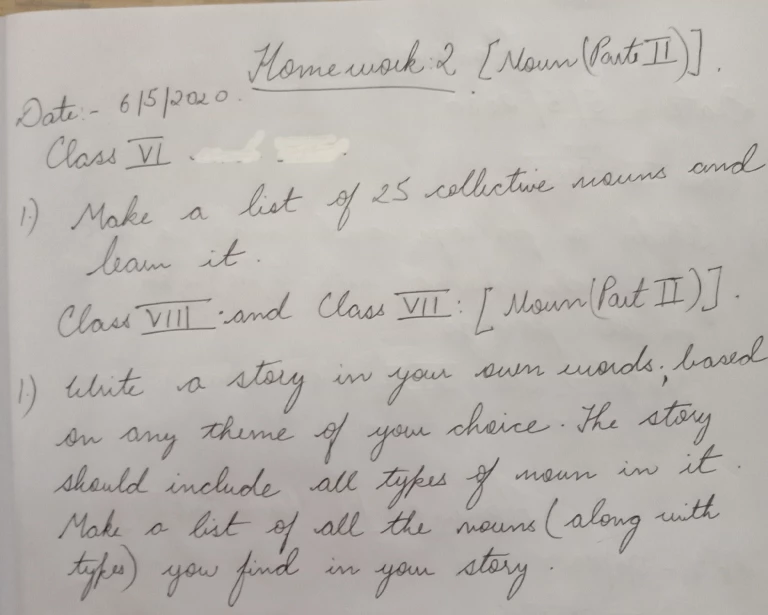 Homework:2 [Noun(Part II)].
Date:- 6/5/2020.
Class VI.
1.) Make a list of 25 collective nouns and
learn it.
Class VIII and Class VII: [Noun(Part II)].
1.) Write a story in your own words, based
on any theme of your choice. The story
should include all types of noun in it.
Make a list of all the nouns (along with
types) you find in your story.